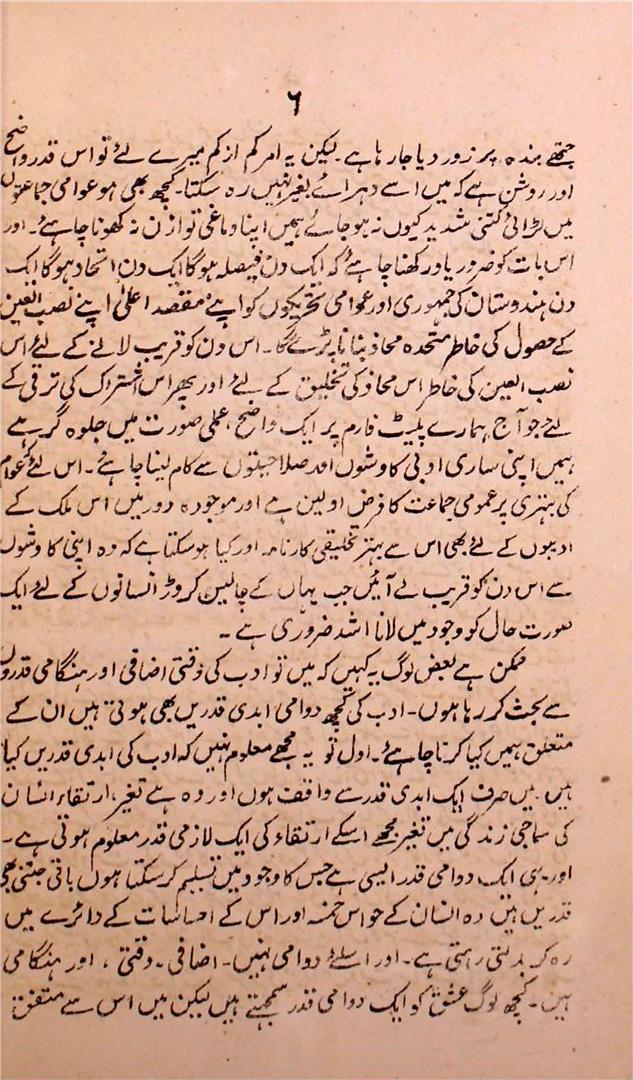 ۶
جتھے بندہ پر زور دیا جا رہا ہے۔ لیکن یہ امر کم از کم میرے لئے تو اس قدر واضح
اور روشن ہے کہ میں اسے دہرائے بغیر نہیں رہ سکتا۔ کچھ بھی ہو عوامی جماعتوں
میں لڑائی کتنی شدید کیوں نہ ہو جائے ہمیں اپنا دماغی توازن نہ کھونا چاہئے۔ اور
اس بات کو ضرور یاد رکھنا چاہئے کہ ایک دن فیصلہ ہوگا ایک دن اتحاد ہوگا ایک
دن ہندوستان کی جمہوری اور عوامی تحریکوں کو اپنے مقصد اعلیٰ اپنے نصب العین
کے حصول کی خاطر متحدہ محاذ بنانا پڑے گا۔ اس دن کو قریب لانے کے لئے اس
نصب العین کی خاطر اس محاذ کی تخلیق کے لئے اور پھر اس اشتراک کی ترقی کے
لئے جو آج ہمارے پلیٹ فارم پر ایک واضح، عملی صورت میں جلوہ گر ہے
ہمیں اپنی ساری ادبی کاوشوں اور صلاحیتوں سے کام لینا چاہئے۔ اس لئے کہ عوام
کی بہتری ہر عمومی جماعت کا فرض اولین ہے اور موجودہ دور میں اس ملک کے
ادیبوں کے لئے بھی اس سے بہتر تخلیقی کارنامہ اور کیا ہو سکتا ہے کہ وہ اپنی کاوشوں
سے اس دن کو قریب لے آئیں جب یہاں کے چالیس کروڑ انسانوں کے لئے ایک
صورت حال کو وجود میں لانا اشد ضروری ہے۔
ممکن ہے بعض لوگ یہ کہیں کہ میں تو ادب کی وقتی اضافی اور ہنگامی قدروں
سے بحث کر رہا ہوں۔ ادب کی کچھ دوامی ابدی قدریں بھی ہوتی ہیں ان کے
متعلق ہمیں کیا کرنا چاہئے۔ اول تو یہ مجھے معلوم نہیں کہ ادب کی ابدی قدریں کیا
ہیں۔ میں صرف ایک ابدی قدر سے واقف ہوں اور وہ ہے تغیر، ارتقاء انسان
کی سماجی زندگی میں تغیر مجھے اسکے ارتقاء کی ایک لازمی قدر معلوم ہوتی ہے۔
اور یہی ایک دوامی قدر ایسی ہے جس کا وجود میں تسلیم کر سکتا ہوں باقی جتنی بھی
قدریں ہیں وہ انسان کے حواس خمسہ اور اس کے احساسات کے دائرے میں
رہ کر بدلتی رہتی ہے۔ اور اسلئے دوامی نہیں۔ اضافی۔ وقتی، اور ہنگامی
ہیں۔ کچھ لوگ عشق کو ایک دوامی قدر سمجھتے ہیں لیکن میں اس سے متفق